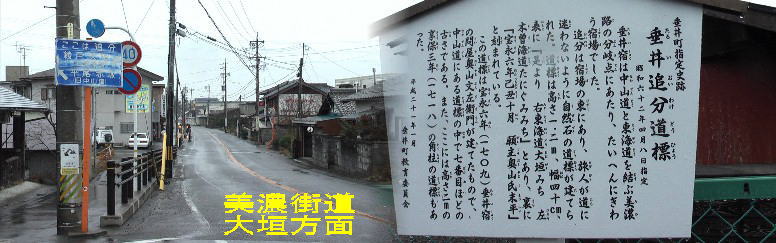 ここは追分
旧中山道
40
美濃街道
大垣方面
垂井町指定史跡
垂井追分道標
たるい おいわけ どうひょう
昭和六十二年四月八日指定
垂井宿は中山道と東海道を結ぶ美濃
路の分岐点にあたり、たいへんにぎわ
う宿場でした。
追分は宿場の東にあり、旅人が道に
迷わないように自然石の道標が建てら
れた。道標は高さ一・二m、幅四十cm、
表に「是より 右東海道大垣みち 左
木曽海道たにぐみみち」とあり、裏に
「宝永六年己丑十月 願主奥山氏末平」
と刻まれている。
この道標は宝永六年(一七〇九)垂井宿
の問屋奥山文左衛門が建てたもので、
中山道にある道標の中で七番目ほどの
古さである。また、ここには高さ二mの
享保三年(一七一八)の角柱の道標もあ
った。
平成二十一年一月
垂井町教育委員会